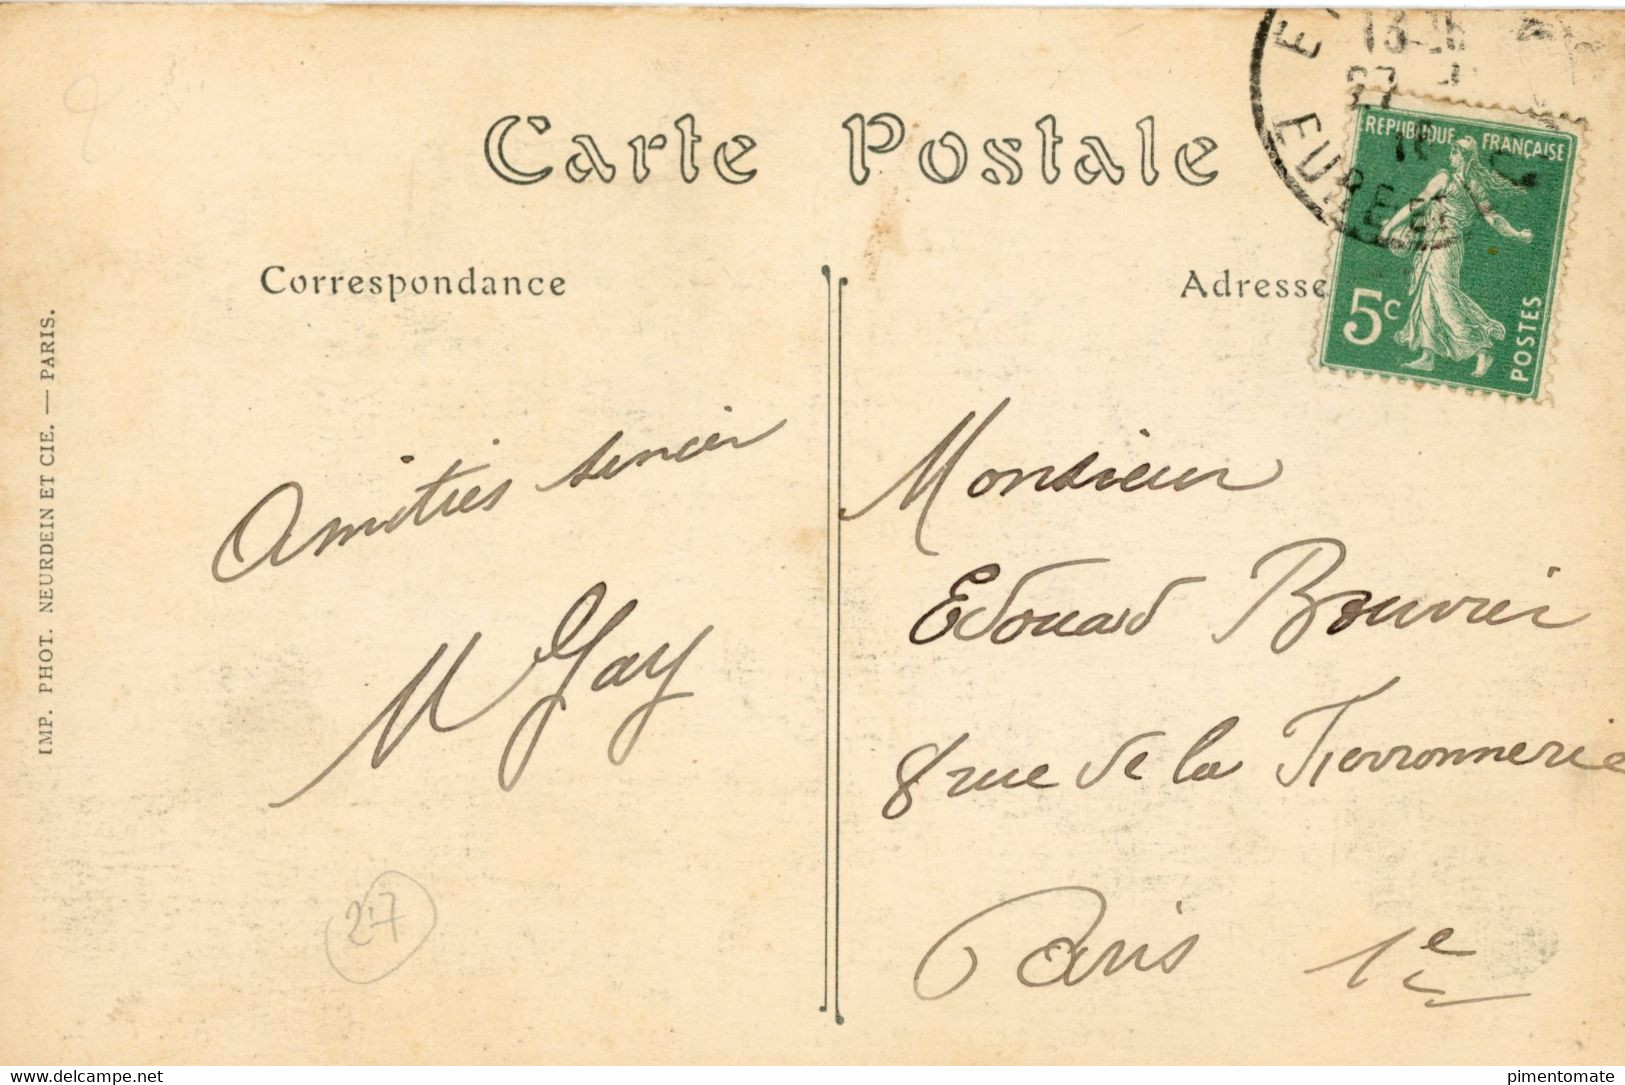 Carte Postale
Correspondance
Adresse
13-
EURE-ET
REPUBLIQUE FRANÇAISE
5c
POSTES
IMP. PHOT. NEURDEIN ET CIE. — PARIS.
Amitiés
M Gay
27
Monsieur
Edouard Bouvier
8 rue de la Ferronnerie
Paris 1e
www.delcampe.net
pimentomate